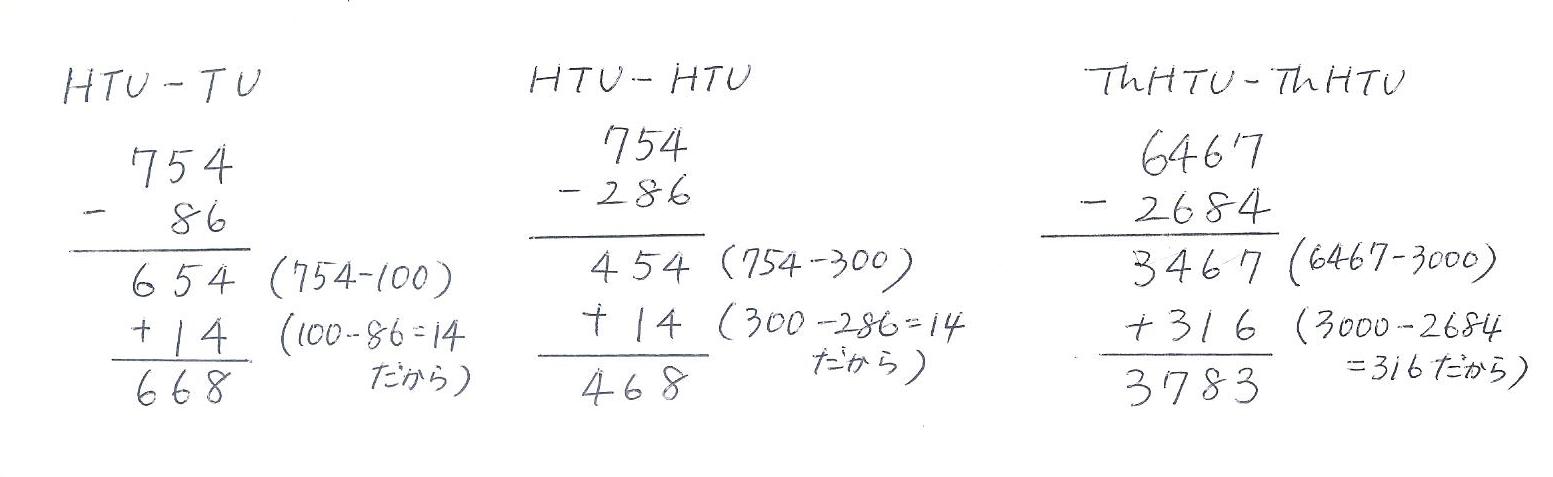 HTU - TU
754
- 86
654 (754-100)
+ 14 (100-86=14
だから)
668
HTU - HTU
754
- 286
454 (754-300)
+ 14 (300-286=14
だから)
468
ThHTU - ThHTU
6467
- 2684
3467 (6467-3000)
+316 (3000-2684
=316だから)
3783